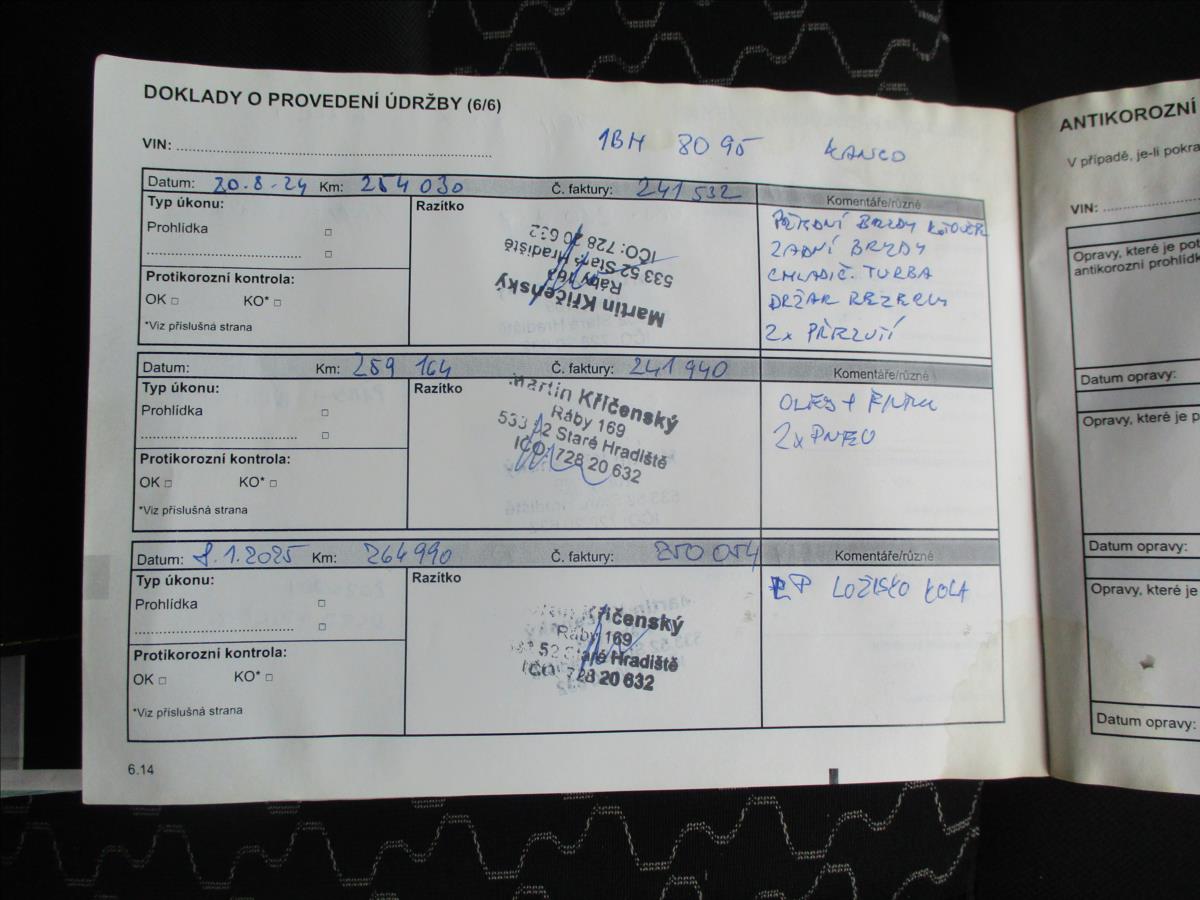 DOKLADY O PROVEDENÍ ÚDRŽBY (6/6)
VIN: 1BH 8095 KANGO
Datum: 20.8.24 Km: 254 030 Č. faktury: 241 532 Komentáře/různé
Typ úkonu:
Prohlídka
Protikorozní kontrola:
OK □ KO* □
*Viz příslušná strana
Razítko
Martin Křičenský
Ráby 169
533 52 Staré Hradiště
IČO: 728 20 632
PŘEDNÍ BRZDY KOTOUČE
ZADNÍ BRZDY
CHLADIČ TURBA
DRŽÁK REZERVY
2x PŘEZUTÍ
Datum: Km: 259 164 Č. faktury: 241 940 Komentáře/různé
Typ úkonu:
Prohlídka
Protikorozní kontrola:
OK □ KO* □
*Viz příslušná strana
Razítko
Martin Křičenský
Ráby 169
533 52 Staré Hradiště
IČO: 728 20 632
OLEJ + FILTRY
2x PNEU
Datum: 8.1.2025 Km: 264990 Č. faktury: 250 054 Komentáře/různé
Typ úkonu:
Prohlídka
Protikorozní kontrola:
OK □ KO* □
*Viz příslušná strana
Razítko
Křičenský
Ráby 169
52 Staré Hradiště
IČO: 728 20 632
LOŽISKO KOLA
6.14
ANTIKOROZNÍ
V případě, je-li pokra
VIN:
Opravy, které je pot
antikorozní prohlídk
Datum opravy:
Opravy, které je p
Datum opravy:
Opravy, které je
Datum opravy: